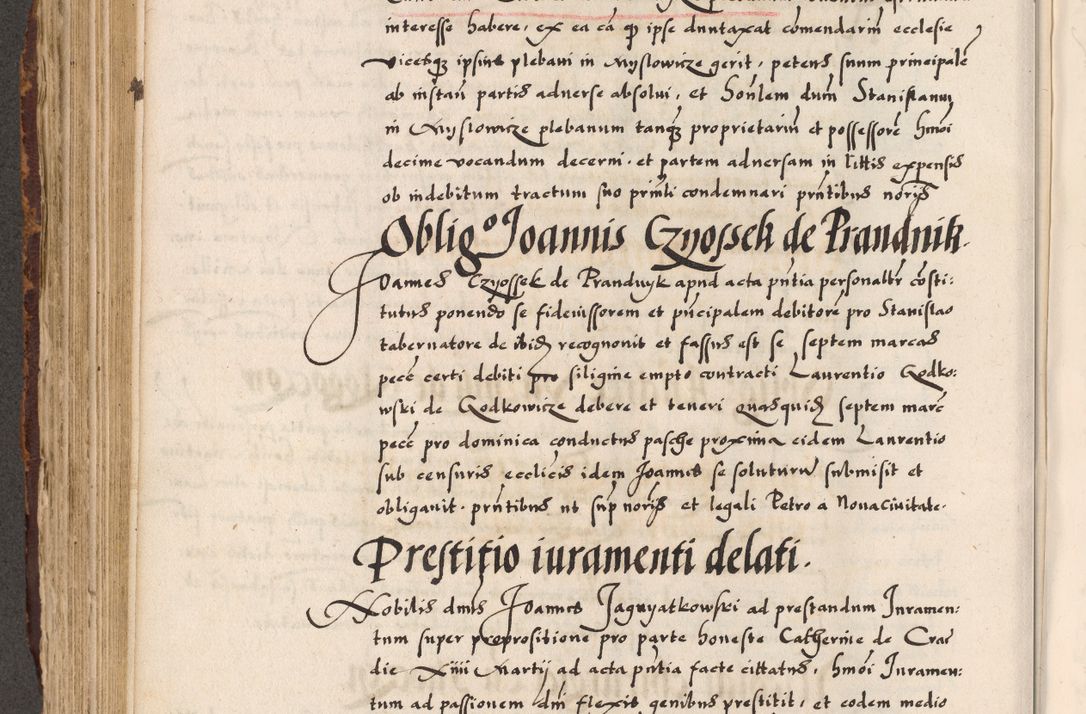 interesse habere, ex ea cā q̄ ipse duntaxat comendariū ecclesie
vicesq̢ ipsius plebani in Myslowicze gerit, petens suum principalē
ab instañ partis adverse absolui, et honlem dum̄ Stanislaum
in Myslowicze plebanum tanq̢ proprietariū et possessorē hmoi
decime vocandum decerni, et partem adversam in littis expensis
ob indebitum tractum suo prinli condemnari prñtibus noriis
Obligº Joannis Czyossek de Prandnik.
Joannes Czyossek de Prandnyk apud acta pñtia personalr̄ cōsti:
tutus ponendo se fideiussorem et pñcipalem debitorē pro Stanislao
tabernatore de ibid̄ recognovit et fassus est se septem marcas
pecc̄ certi debiti pro siligine empto contracti Laurentio Godko:
wski de Godkowicze debere et teneri quasquid̄ septem marc̄
pecc̄ pro dominica conductus pasche proxima eidem Laurentio
sub censuris ecclicis idem Joannes se soluturū submisit et
obligavit. prñtibus ut sup̄ noriis et legali Petro a Novacivitate.
Prestitio iuramenti delati.
Nobilis dnus Joannes Jagnyatkowski ad prestandum Juramen:
tum super propositione pro parte honeste Catherine de Crac̄
die XIIII Martij ad acta pñtia facte cittatus, hmōi Juramen:
tum ad passionem dni flexis genibus prestitit, et eodem medio